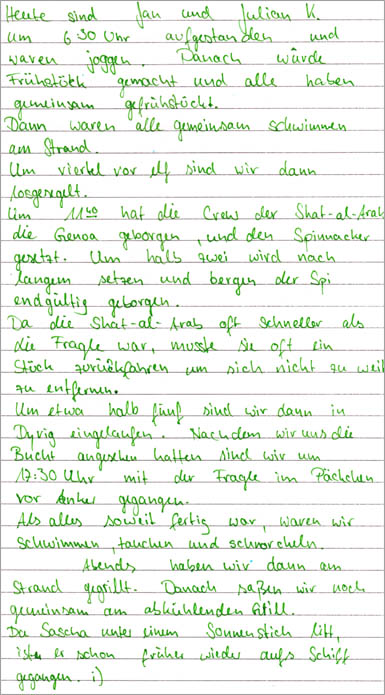 Heute sind Jan und Julian K.
um 6 30 Uhr aufgestanden und
waren joggen. Danach würde
Frühstück gemacht und alle haben
gemeinsam gefrühstückt.
Dann waren alle gemeinsam schwimmen
am Strand.
Um viertel vor elf sind wir dann
losgesegelt.
Um 11 40 hat die Crew der Shat-al-Arab
die Genoa geborgen, und den Spinnacker
gesetzt. Um halb zwei wird nach
langem setzen und bergen der Spi
endgültig geborgen.
Da die Shat-al-Arab oft schneller als
die Fragle war, musste sie oft ein
Stück zurückfahren um sich nicht zu weit
zu entfernen.
Um etwa halb fünf sind wir dann in
Dyvig eingelaufen. Nachdem wir uns die
Bucht angesehen hatten sind wir um
17:30 Uhr mit der Fragle im Päckchen
vor Anker gegangen.
Als alles soweit fertig war, waren wir
schwimmen, tauchen und schnorcheln.
Abends haben wir dann am
Strand gegrillt. Danach saßen wir noch
gemeinsam am abkühlenden Grill.
Da Sascha unter einem Sonnenstich litt,
ist er schon früher wieder aufs Schiff
gegangen. ;)